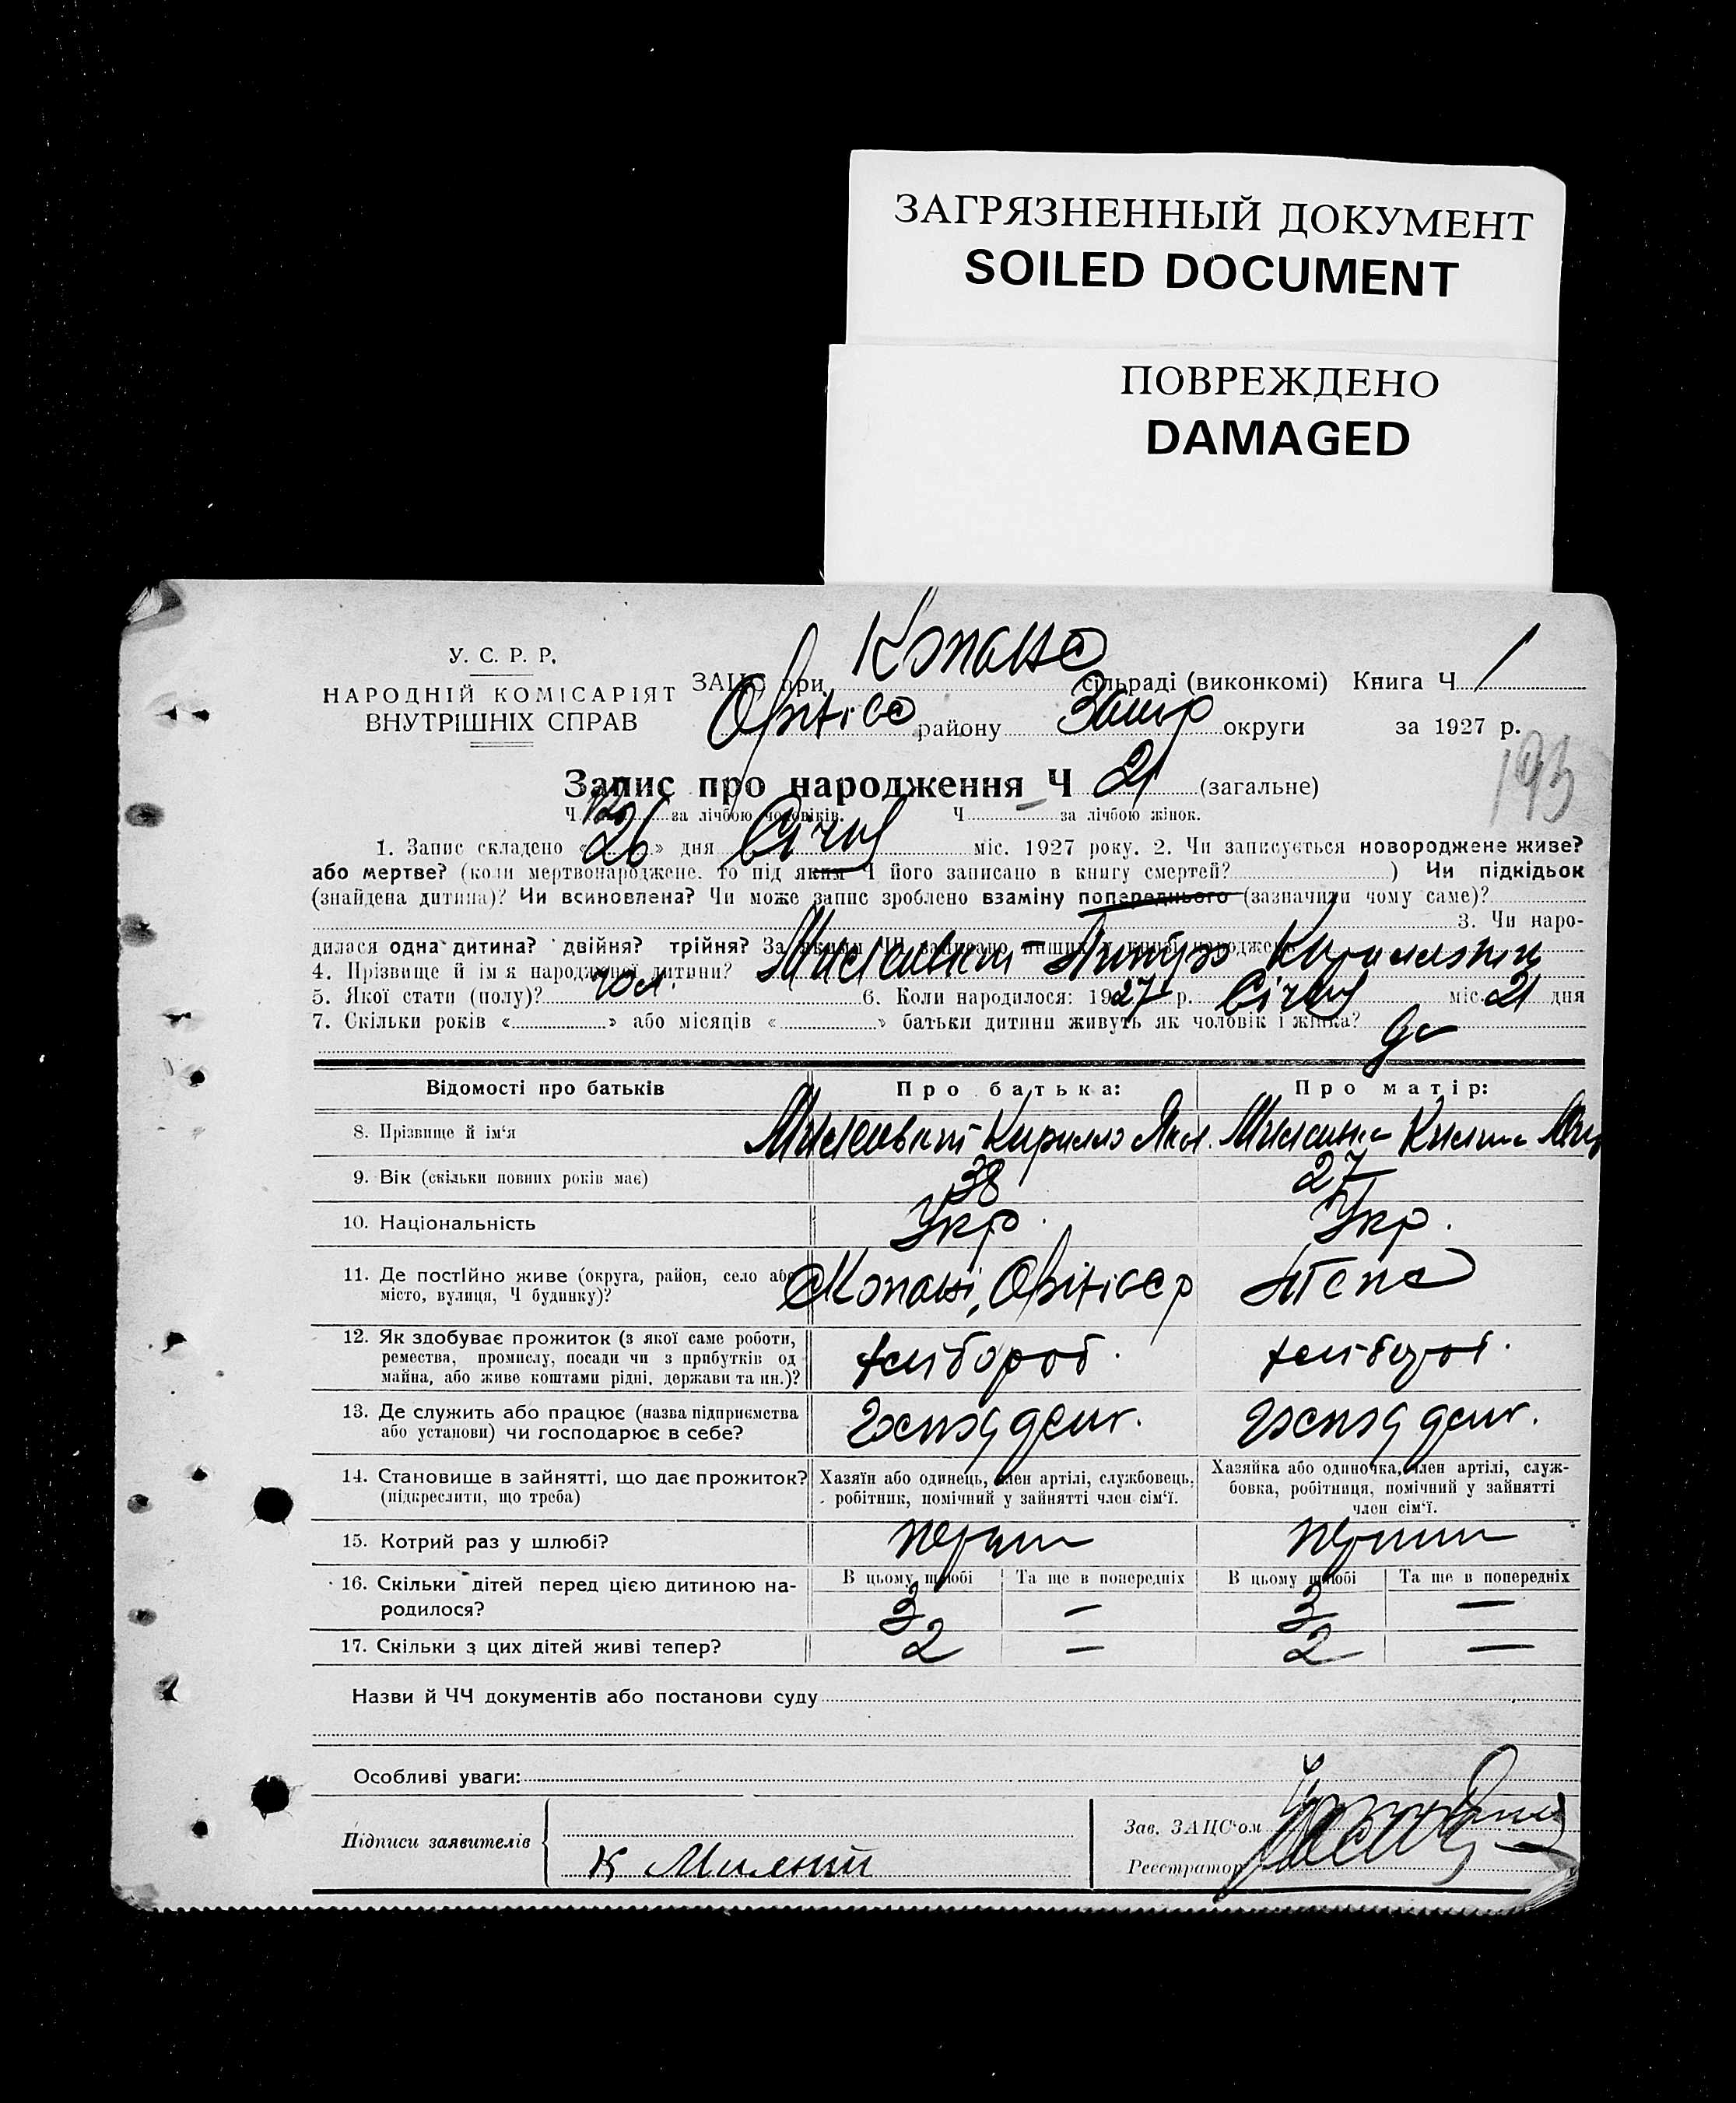 ЗАГРЯЗНЕННЫЙ ДОКУМЕНТ
SOILED DOCUMENT
ПОВРЕЖДЕНО
DAMAGED
У. С. Р. Р.
НАРОДНІЙ КОМІСАРІЯТ
ВНУТРІШНІХ СПРАВ
ЗАЦС при сільраді (виконкомі) Книга Ч. 1
району округи за 1927 р.
193
Запис про народження Ч 21 (загальне)
Ч. 12 за лічбою чоловіків. Ч. — за лічбою жінок.
1. Запис складено «26» дня Січня міс. 1927 року. 2. Чи записується новороджене живе?
або мертве? (коли мертвонароджене, то під яким Ч його записано в книгу смертей? ) Чи підкідьок
(знайдена дитина)? Чи всиновлена? Чи може запис зроблено взаміну попереднього (зазначити чому саме)?
3. Чи наро-
дилася одна дитина? двійня? трійня? За якими ЧЧ записано инших у книзі народжень
4. Прізвище й ім'я народженої дитини?
5. Якої стати (полу)? чол. 6. Коли народилося: 1927 р. Січня міс. 21 дня
7. Скільки років « » або місяців « » батьки дитини живуть як чоловік і жінка?
Відомості про батьків
Про батька:
Про матір:
8. Прізвище й ім'я
Кирилло
9. Вік (скільки повних років має)
38
27
10. Національність
Укр.
Укр.
11. Де постійно живе (округа, район, село або
місто, вулиця, Ч будинку)?
12. Як здобуває прожиток (з якої саме роботи,
ремества, промислу, посади чи з прибутків од
майна, або живе коштами рідні, держави та ин.)?
хлібороб.
13. Де служить або працює (назва підприємства
або установи) чи господарює в себе?
14. Становище в зайнятті, що дає прожиток?
(підкреслити, що треба)
Хазяїн або одинець, член артілі, службовець,
робітник, помічний у зайнятті член сім'ї.
Хазяйка або одиночка, член артілі, служ-
бовка, робітниця, помічний у зайнятті
член сім'ї.
15. Котрий раз у шлюбі?
16. Скільки дітей перед цією дитиною на-
родилося?
В цьому шлюбі
Та ще в попередніх
В цьому шлюбі
Та ще в попередніх
3
—
3
—
17. Скільки з цих дітей живі тепер?
2
—
2
—
Назви й ЧЧ документів або постанови суду
Особливі уваги:
Підписи заявителів
К
Зав. ЗАЦС'ом
Реєстратор